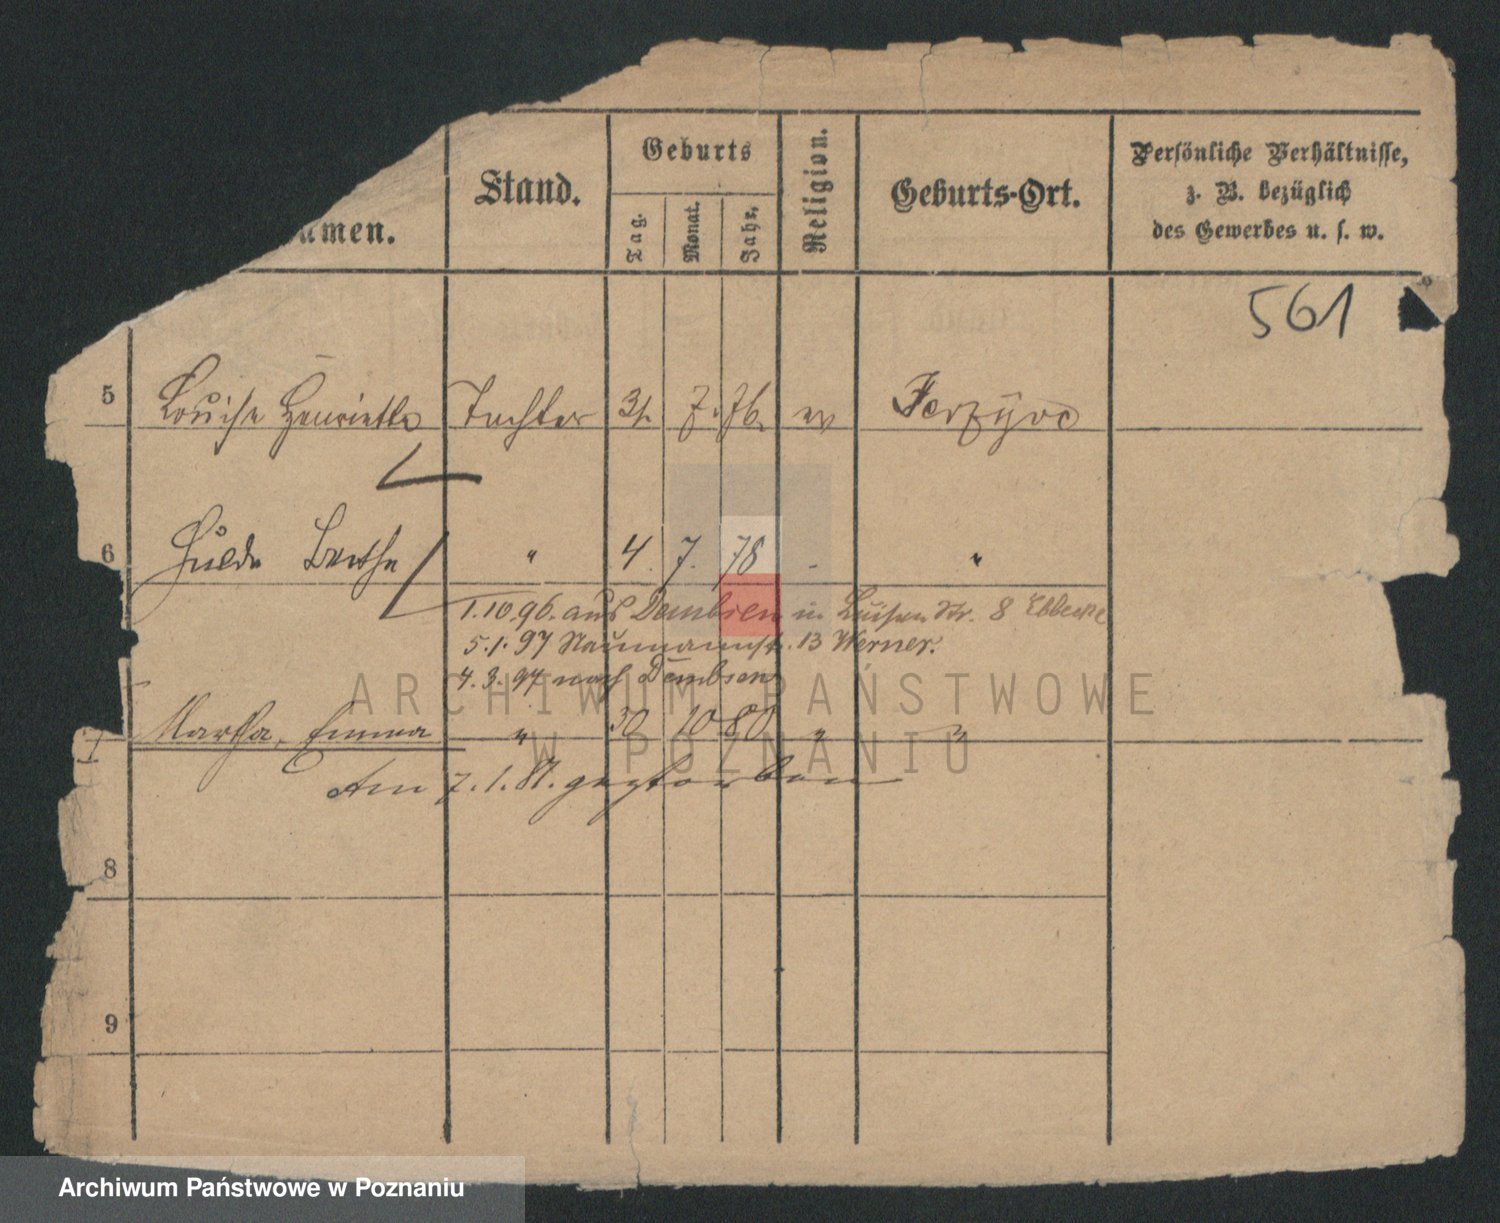 amen.
Stand.
Geburts
Tag.
Monat.
Jahr.
Religion.
Geburts-Ort.
Persönliche Verhältnisse,
z. B. bezüglich
des Gewerbes u. s. w.
561
5 Louise Henriette Tochter 31. 7. 76. ev Jerzyce
6 Hulda Bertha " 4. 7. 78 - "
1.10.96. aus Dembsen in Luisen Str. 8
5.1.97 Naumannstr. 13 Werner.
4.3.97 nach Dembsen
7 Martha, Emma " 30 10 80 " "
Am 7.1.81. gestorben
8
9
ARCHIWUM PAŃSTWOWE
W POZNANIU
Archiwum Państwowe w Poznaniu